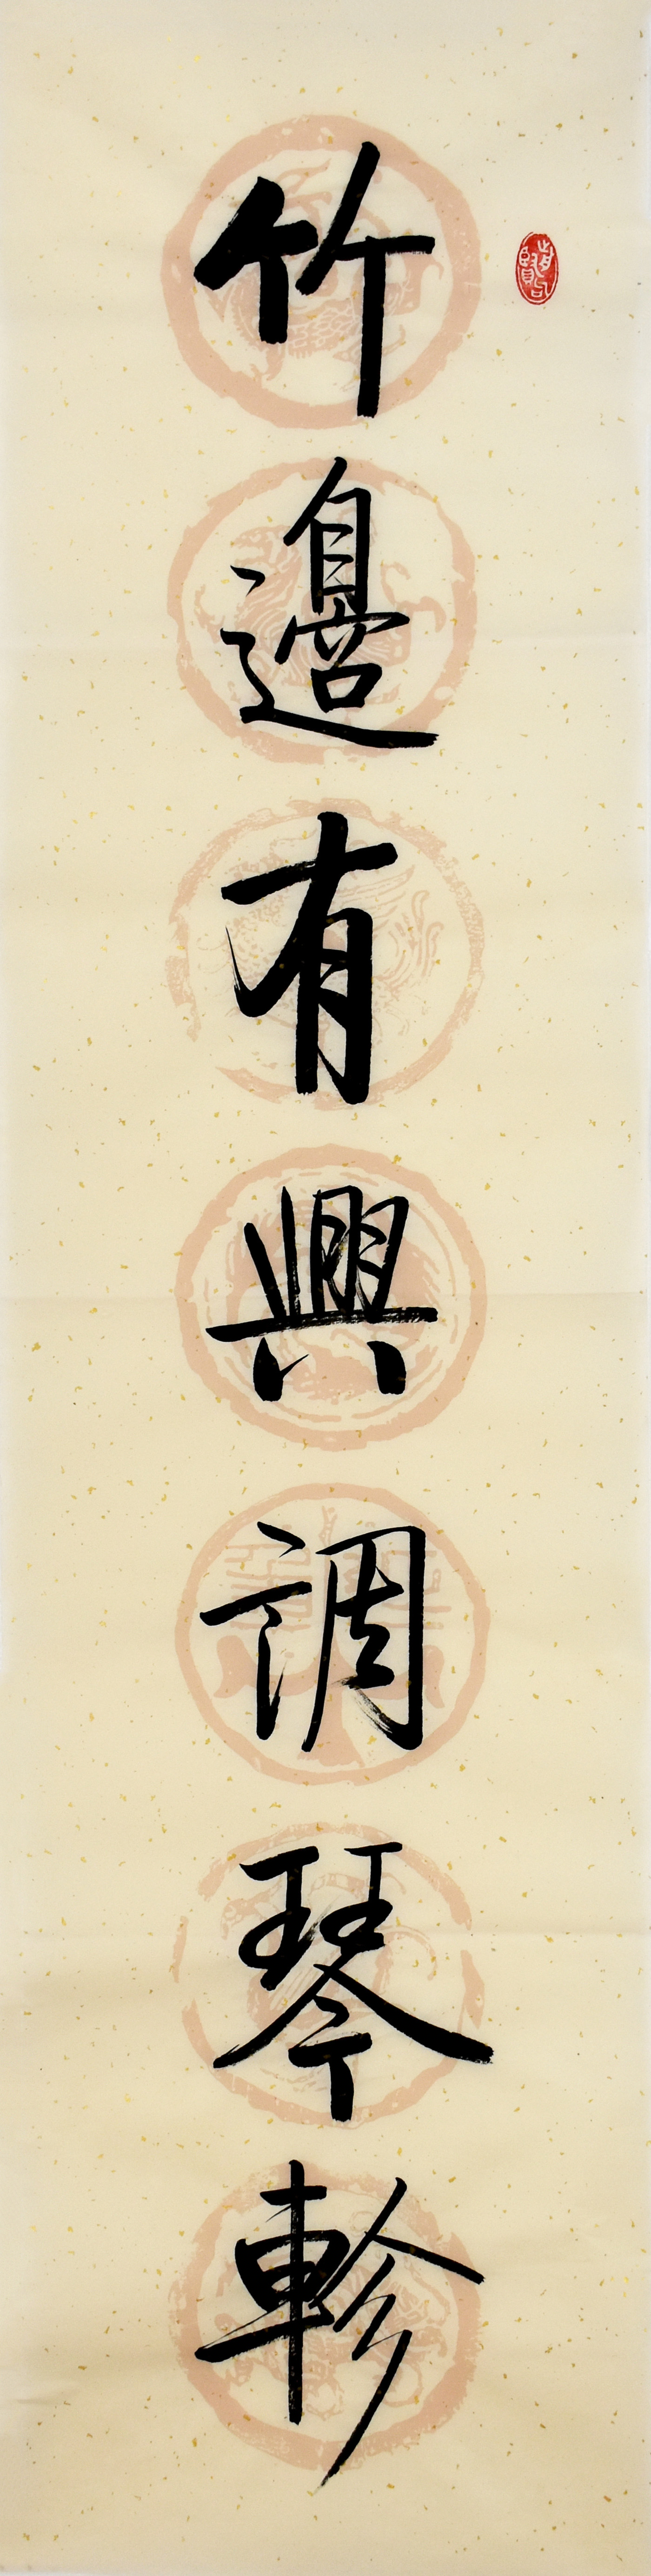 竹邊有興調琴軫